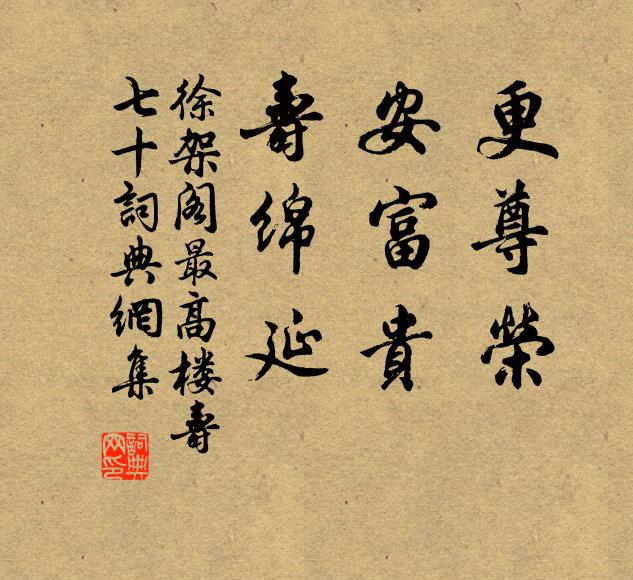 更尊榮
安富貴
壽綿延
徐架阁最高楼壽
七十詞典網集
詞典网印